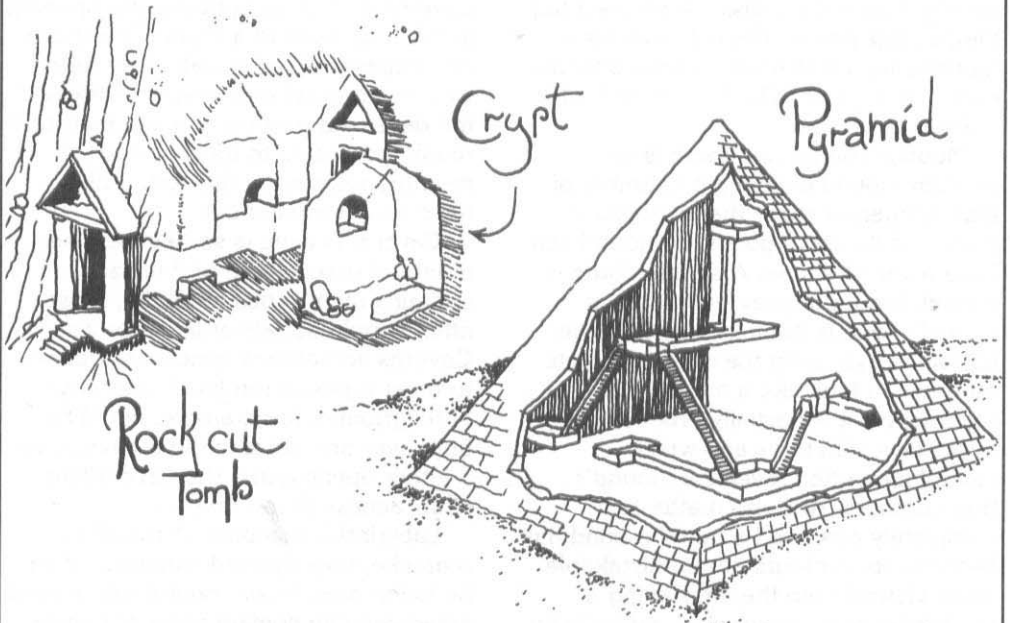 Crypt
Pyramid
Rock cut
Tomb